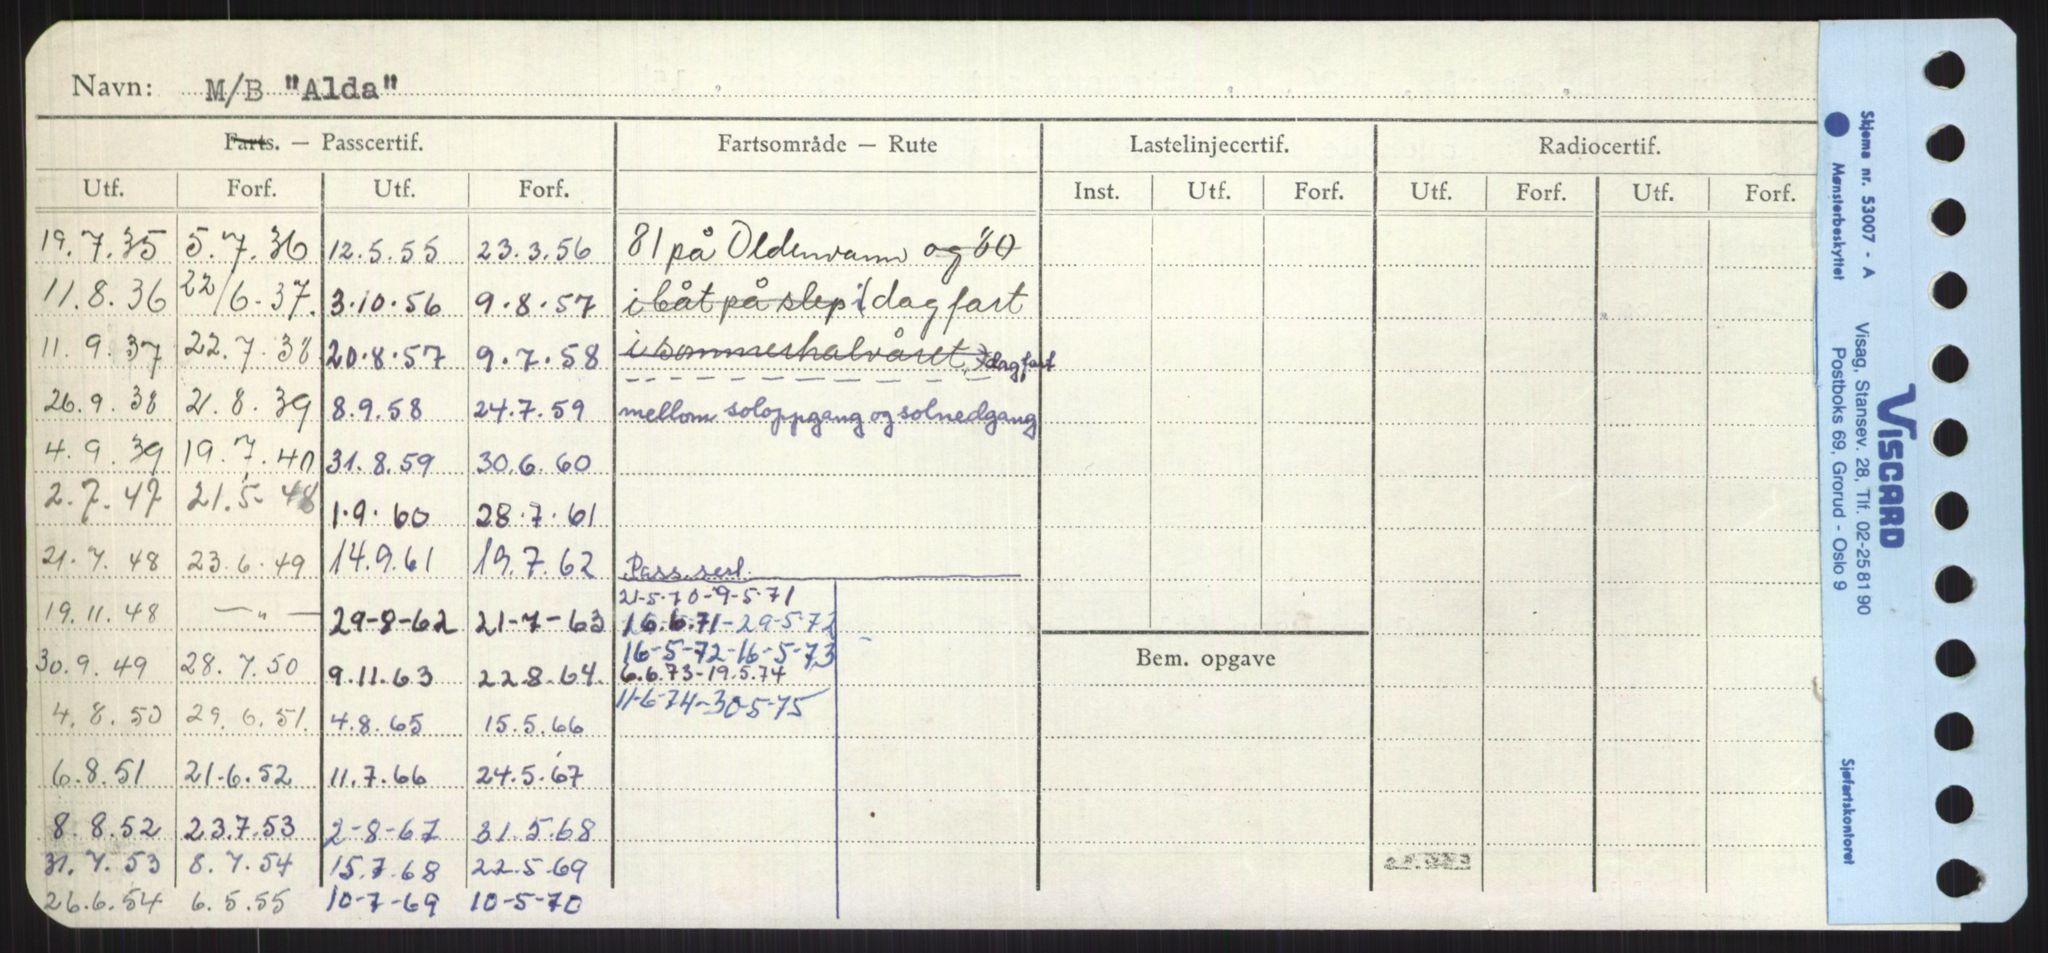 Navn: M/B "Alda"
Farts. — Passcertif. Fartsområde — Rute Lastelinjecertif. Radiocertif.
Utf. Forf. Utf. Forf. Inst. Utf. Forf. Utf. Forf. Utf. Forf.
19.7.35 5.7.36 12.5.55 23.3.56 81 på Oldenvann og 60
11.8.36 22/6-37. 3.10.56 9.8.57 i båt på slep i dagfart
11.9.37 22.7.38 20.8.57 9.7.58 i sommerhalvåret, dagfart
26.9.38 21.8.39 8.9.58 24.7.59 mellom soloppgang og solnedgang
4.9.39 19.7.40 31.8.59 30.6.60
2.7.47 21.5-48 1.9.60 28.7.61
21.7.48 23.6.49 14.9.61 19.7.62 Pass.sert.
21-5-70-9-5-71
19.11.48 — " — 29-8-62 21-7-63 16.6.71-29-5-72
16-5-72-16-5-73
30.9.49 28.7.50 9.11.63 22.8.64. 6.6.73-19.5.74
Bem. opgave
4.8.50 29.6.51. 4.8.65 15.5.66 11-6-74-30-5-75
6.8.51 21-6.52 11.7.66 24.5.67
8.8.52 23.7.53 2-8-67 31.5.68
31.7.53 8.7.54 15.7.68 22.5.69
26.6.54 6.5.55 10-7-69 10-5-70
Skjema nr. 53007 - A
Mønsterbeskyttet
Visag, Stansev. 28, Tlf. 02-25 81 90
Postboks 69, Grorud - Oslo 9
VISCARD
Sjøfartskontoret